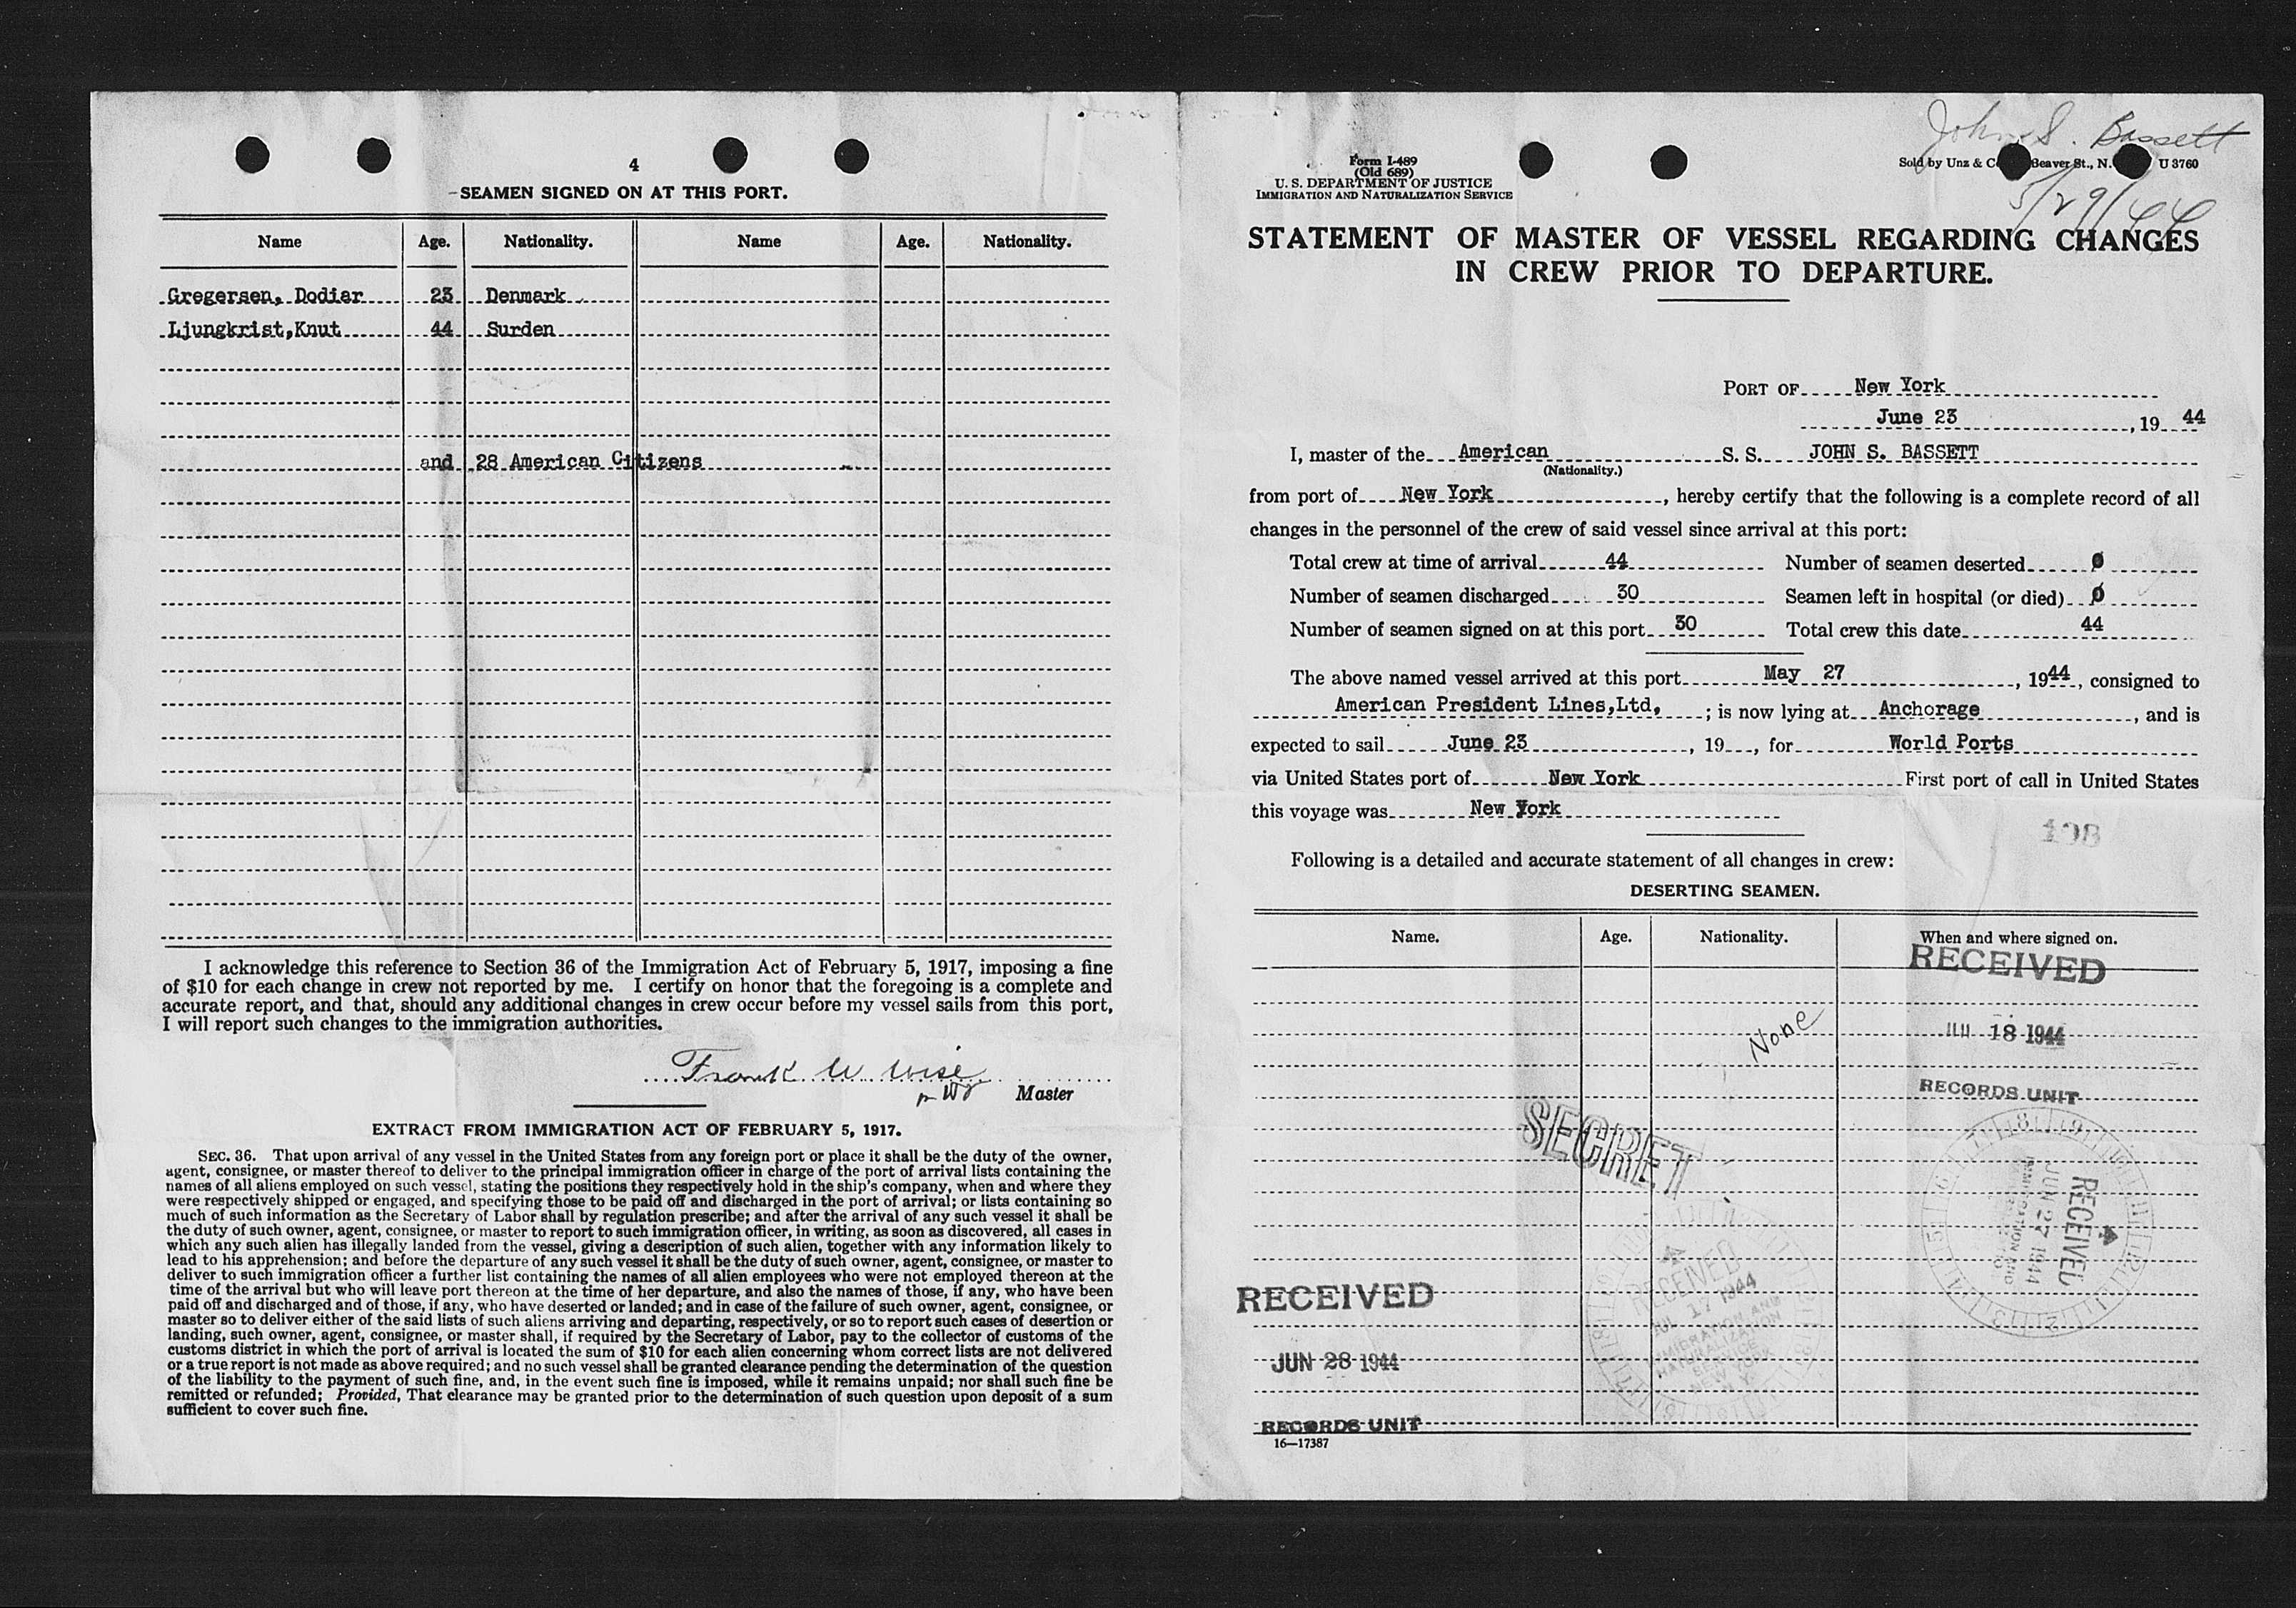 4
SEAMEN SIGNED ON AT THIS PORT.
Name Age. Nationality. Name Age. Nationality.
Gregersen, Dodiar 23 Denmark
Ljungkrist,Knut 44 Surden
and 28 American Citizens
I acknowledge this reference to Section 36 of the Immigration Act of February 5, 1917, imposing a fine
of $10 for each change in crew not reported by me. I certify on honor that the foregoing is a complete and
accurate report, and that, should any additional changes in crew occur before my vessel sails from this port,
I will report such changes to the immigration authorities.
Frank W Wise
Master
EXTRACT FROM IMMIGRATION ACT OF FEBRUARY 5, 1917.
SEC. 36. That upon arrival of any vessel in the United States from any foreign port or place it shall be the duty of the owner,
agent, consignee, or master thereof to deliver to the principal immigration officer in charge of the port of arrival lists containing the
names of all aliens employed on such vessel, stating the positions they respectively hold in the ship's company, when and where they
were respectively shipped or engaged, and specifying those to be paid off and discharged in the port of arrival; or lists containing so
much of such information as the Secretary of Labor shall by regulation prescribe; and after the arrival of any such vessel it shall be
the duty of such owner, agent, consignee, or master to report to such immigration officer, in writing, as soon as discovered, all cases in
which any such alien has illegally landed from the vessel, giving a description of such alien, together with any information likely to
lead to his apprehension; and before the departure of any such vessel it shall be the duty of such owner, agent, consignee, or master to
deliver to such immigration officer a further list containing the names of all alien employees who were not employed thereon at the
time of the arrival but who will leave port thereon at the time of her departure, and also the names of those, if any, who have been
paid off and discharged and of those, if any, who have deserted or landed; and in case of the failure of such owner, agent, consignee, or
master so to deliver either of the said lists of such aliens arriving and departing, respectively, or so to report such cases of desertion or
landing, such owner, agent, consignee, or master shall, if required by the Secretary of Labor, pay to the collector of customs of the
customs district in which the port of arrival is located the sum of $10 for each alien concerning whom correct lists are not delivered
or a true report is not made as above required; and no such vessel shall be granted clearance pending the determination of the question
of the liability to the payment of such fine, and, in the event such fine is imposed, while it remains unpaid; nor shall such fine be
remitted or refunded; Provided, That clearance may be granted prior to the determination of such question upon deposit of a sum
sufficient to cover such fine.
John S. Bassett
5/29/44
Form I-489
(Old 689)
U. S. DEPARTMENT OF JUSTICE
IMMIGRATION AND NATURALIZATION SERVICE
Sold by Unz & Beaver St., N. U 3760
STATEMENT OF MASTER OF VESSEL REGARDING CHANGES
IN CREW PRIOR TO DEPARTURE.
PORT OF New York
June 23, 19 44
I, master of the American S. S. JOHN S. BASSETT
(Nationality.)
from port of New York, hereby certify that the following is a complete record of all
changes in the personnel of the crew of said vessel since arrival at this port:
Total crew at time of arrival 44 Number of seamen deserted 0
Number of seamen discharged 30 Seamen left in hospital (or died) 0
Number of seamen signed on at this port 30 Total crew this date 44
The above named vessel arrived at this port May 27, 1944, consigned to
American President Lines,Ltd, ; is now lying at Anchorage, and is
expected to sail June 23, 19 , for World Ports
via United States port of New York First port of call in United States
this voyage was New York
198
Following is a detailed and accurate statement of all changes in crew:
DESERTING SEAMEN.
Name. Age. Nationality. When and where signed on.
RECEIVED
None
JUL 18 1944
RECORDS UNIT
SECRET
RECEIVED
JUN 27 1944
RECEIVED
JUL 17 1944
IMMIGRATION AND
NATURALIZATION
SERVICE
NEW YORK
RECEIVED
JUN 28 1944
RECORDS UNIT
16—17387